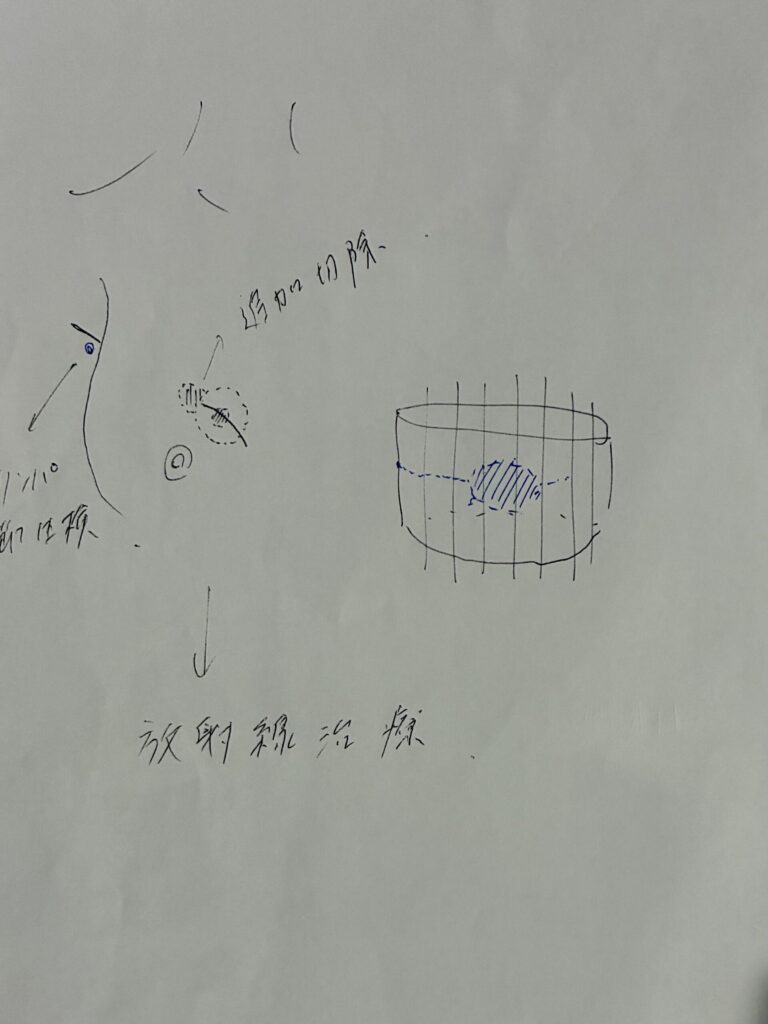 追加切除
リンパ
節生検
放射線治療